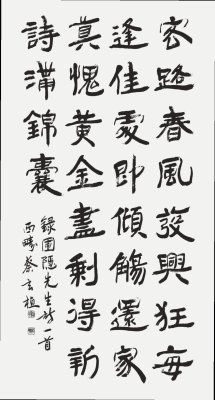 客路春風發興狂每
逢佳處卽傾觴還家
莫愧黃金盡剩得新
詩滿錦囊
錄圃隱先生詩一首
蔡玄植